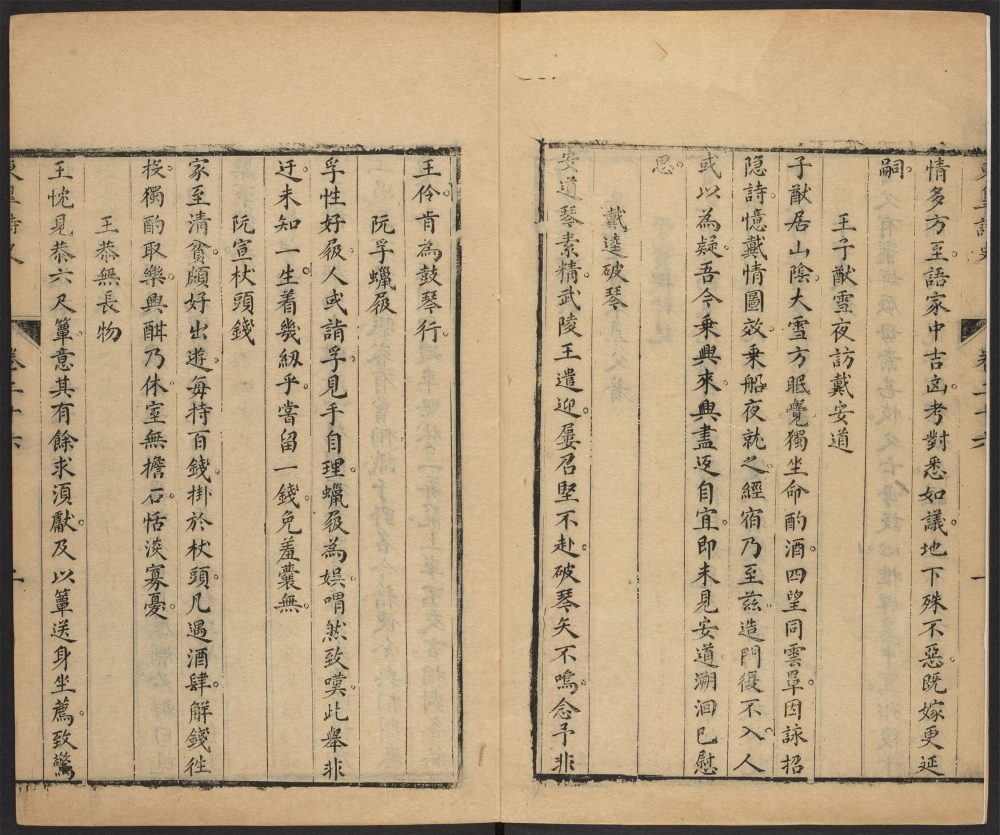 情多方至語家中吉凶考對悉如議地下殊不惡既嫁更延
嗣
王子猷雪夜訪戴安道
子猷居山陰大雪方眠覺獨坐命酌酒四望同雲罩因詠招
隐詩憶戴情圖效乗船夜就之經宿乃至兹造門復不入人
或以為疑吾今乗興來興盡返自宜即未見安道溯洄已慰
思
戴逵破琴
安道琴素精武陵王遣迎屡召堅不赴破琴矢不鳴念予非
王伶肯為鼓琴行
阮孚蠟屐
孚性好屐人或詣孚見手自理蠟屐為娱喟然致嘆此舉非
迂未知一生着幾緉乎嘗留一錢免羞囊無
阮宣杖頭錢
家至清貧頗好出遊每持百錢掛於杖頭凡遇酒肆解錢徃
投獨酌取樂興酣乃休室無擔石恬淡寡憂
王恭無長物
王忱見恭六尺簟意其有餘求湏獻及以簟送身坐薦致驚
卷二十六
二
卷二十六
一